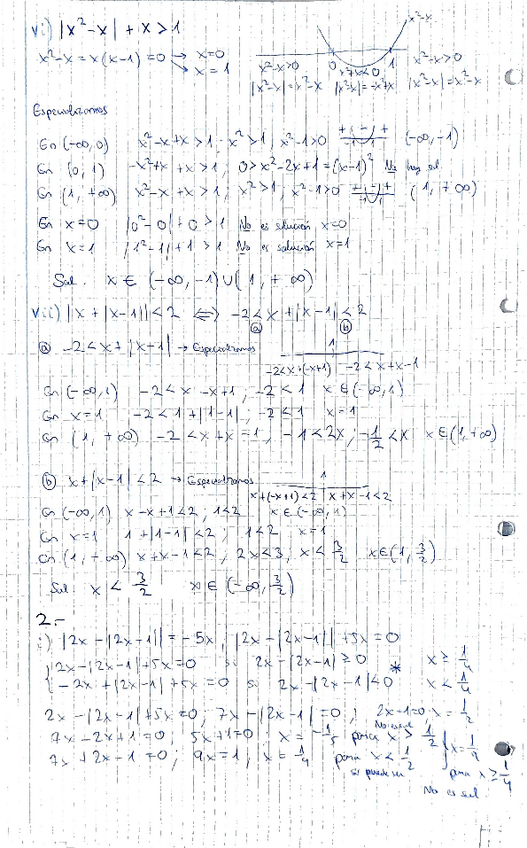 vi) |x²-x| + x > 1
x²-x
x²-x = x(x-1) = 0 → x=0
→ x=1
x²-x>0 0 x²-x<0 1 x²-x>0
|x²-x| = x²-x |x²-x| = -x²+x |x²-x| = x²-x
En (-∞,0) x²-x+x>1; x²>1, x²-1>0 + - + -1 1 (-∞,-1)
En (0,1) -x²+x+x>1, 0>x²-2x+1=(x-1)² No hay sol
En (1,+∞) x²-x+x>1; x²>1, x²-1>0 + - + -1 1 (1,+∞)
En x=0 |0²-0|+0>1 No es solución x=0
En x=1 |1²-1|+1>1 No es solución x=1
Sol. x ∈ (-∞,-1)∪(1,+∞)
vii) |x+|x-1||<2 ⟺ -2<x+|x-1|<2
ⓐ ⓑ
ⓐ -2<x+|x-1| →
1
-2<x+(-x+1) -2<x+x-1
En (-∞,1) -2<x-x+1, -2<1 x∈(-∞,1)
En x=1 -2<1+|1-1|, -2<1 x=1
En (1,+∞) -2<x+x-1, -1<2x, -1/2<x x∈(1,+∞)
ⓑ x+|x-1|<2 →
1
x+(-x+1)<2 x+x-1<2
En (-∞,1) x-x+1<2, 1<2 x∈(-∞,1)
En x=1 1+|1-1|<2, 1<2 x=1
En (1,+∞) x+x-1<2, 2x<3, x<3/2 x∈(1,3/2)
Sol. x<3/2 x∈(-∞,3/2)
2.-
i) |2x-|2x-1|| = -5x, |2x-|2x-1||+5x=0
2x-|2x-1|+5x=0 si 2x-|2x-1|≥0 * x≥1/4
-2x+|2x-1|+5x=0 si 2x-|2x-1|<0 x<1/4
2x-|2x-1|+5x=0; 7x-|2x-1|=0; 2x-1=0, x=1/2
7x-2x+1=0, 5x+1=0 x=-1/5 para x>1/2 No es sol
7x+2x-1=0; 9x=1, x= para x<1/2 x=1/9
si puede ser para x≥1/4
No es sol